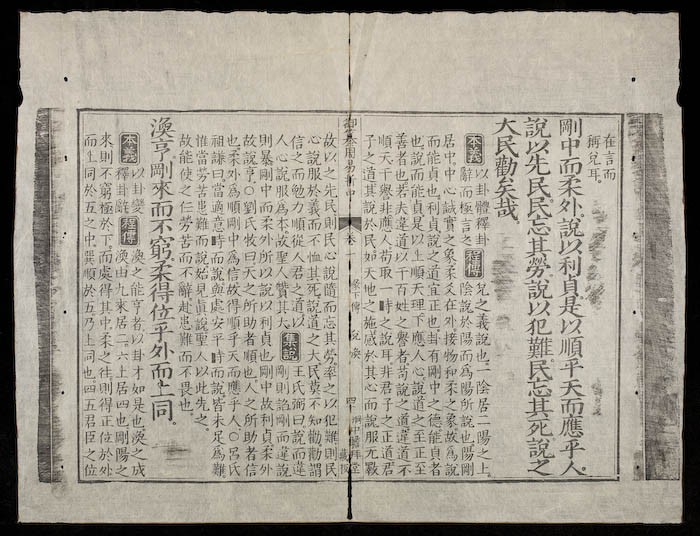 在言而
稱兌耳。
剛中而柔外。說以利貞。是以順乎天而應乎人。
說以先民。民忘其勞。說以犯難。民忘其死。說之
大。民勸矣哉。
本義 以卦體釋卦 程傳 兌之義說也。一陰居二陽之上。
辭而極言之 陰說於陽而爲陽所說也。陽剛
居中。中心誠實之象。柔爻在外。接物和柔之象。故爲說
而能貞也。利貞。說之道宜正也。卦有剛中之德。能貞者
也。說而能貞。是以上順天理。下應人心。說道之至正至
善者也。若夫違道以干百姓之譽者。苟說之道。違道不
順天。干譽非應人。苟取一時之說耳。非君子之正道。君
子之道。其說於民。如天地之施。感於其心而說服无斁
御纂周易折中
彖下傳 兌 渙
故以之先民則民心說隨而忘其勞率之以犯難則民
心說服於義而不恤其死說道之大民莫不知勸勸謂
信之而勉力順從人君之道以 集說 王氏弼曰說而違
人心說服爲本故聖人贊其大 剛則諂剛而違說
則暴剛中而柔外所以說以利貞也剛中故利貞柔外
故說亨○劉氏牧曰天之所助者順也人之所助者信
也柔外爲順剛中爲信故得順乎天而應乎人○呂氏
祖謙曰當適意時而說與處安平時而說皆未足爲難
惟當勞苦患難而說始見眞說聖人以此先之。
故能使之任勞苦而不辭赴患難而不畏也。
渙亨。剛來而不窮。柔得位乎外而上同。
本義 以卦變 程傳 渙之能亨者。以卦才如是也。渙之成
釋卦辭 渙由九來居二。六上居四也。剛陽之
來則不窮極於下。而處得其中。柔之往則得正位於外
而上同於五之中。巽順於五乃上同也。四五君臣之位